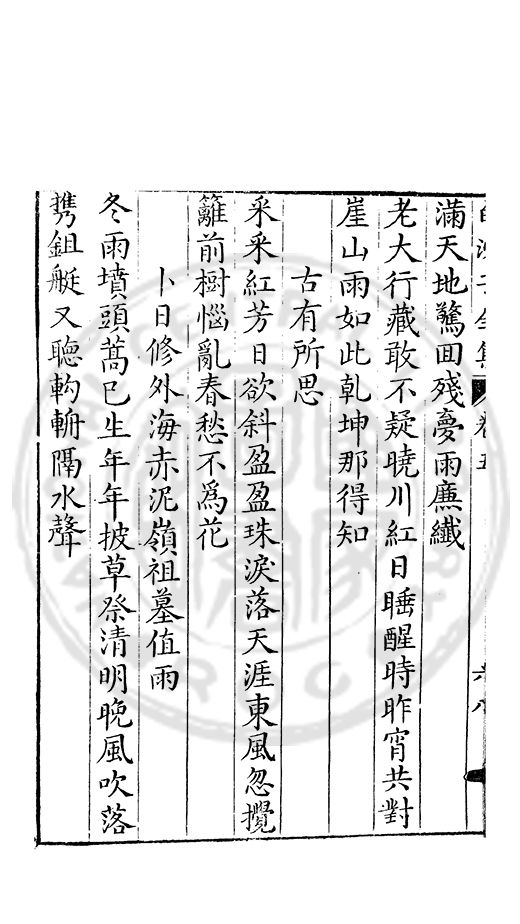 白沙子全集 卷五 六八
滿天地驚回殘夢雨廉纖
老大行藏敢不疑曉川紅日睡醒時昨宵共對
崖山雨如此乾坤那得知
古有所思
釆釆紅芳日欲斜盈盈珠淚落天涯東風忽攪
籬前樹惱亂春愁不爲花
卜日修外海赤泥嶺祖墓值雨
冬雨墳頭蒿已生年年披草祭清明晚風吹落
携鉏艇又聽軥輈隔水聲